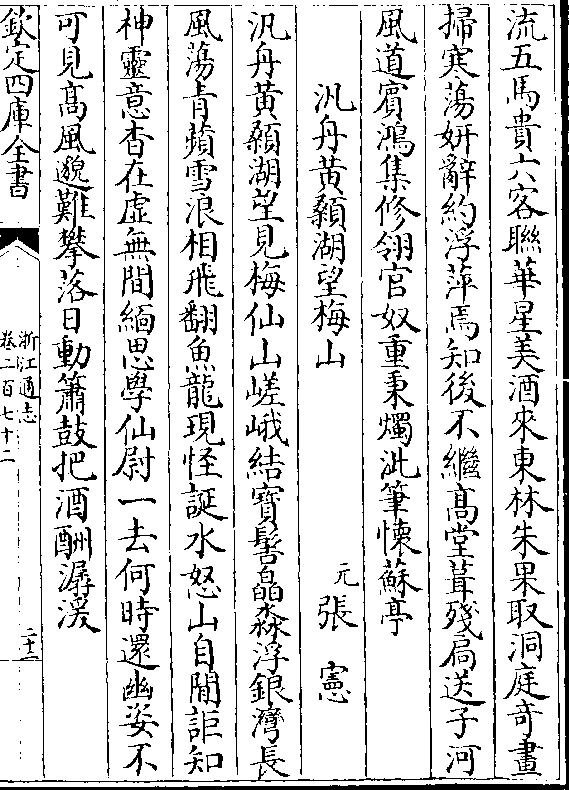 流五馬貴六客聯華星美酒來東林朱果取洞庭竒畫
掃寒蕩妍辭約浮萍焉知後不繼髙堂葺殘扃送子河
風道賓鴻集修翎官奴重秉燭泚筆懐蘇亭
汎舟黃顙湖望梅山
元張憲
汎舟黃顙湖望見梅仙山嵯峨結寳髻皛淼浮銀灣長
風蕩青蘋雪浪相飛翻魚龍現怪誕水怒山自閒詎知
神靈意杳在虚無間緬思學仙尉一去何時還幽姿不
可見髙風邈難攀落日動簫鼓把酒酬潺湲
欽定四庫全書
浙江通志
卷二百七十二
二十三